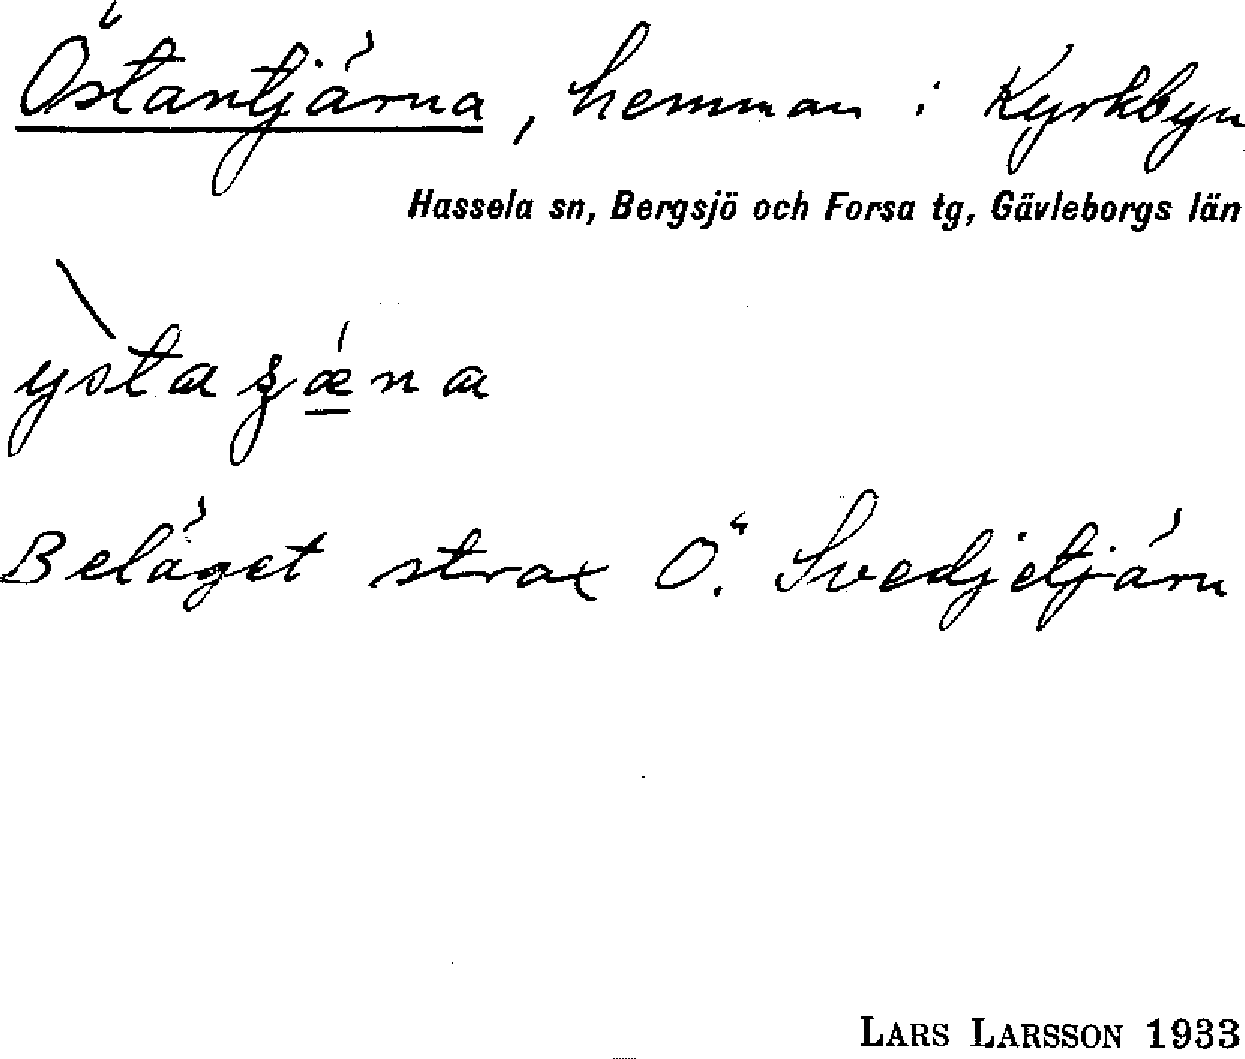 Östantjärna, hemman i Kyrkbyn
Hassela sn, Bergsjö och Forsa tg, Gävleborgs län
Beläget strax Ö. Svedjetjärn
LARS LARSSON 1933